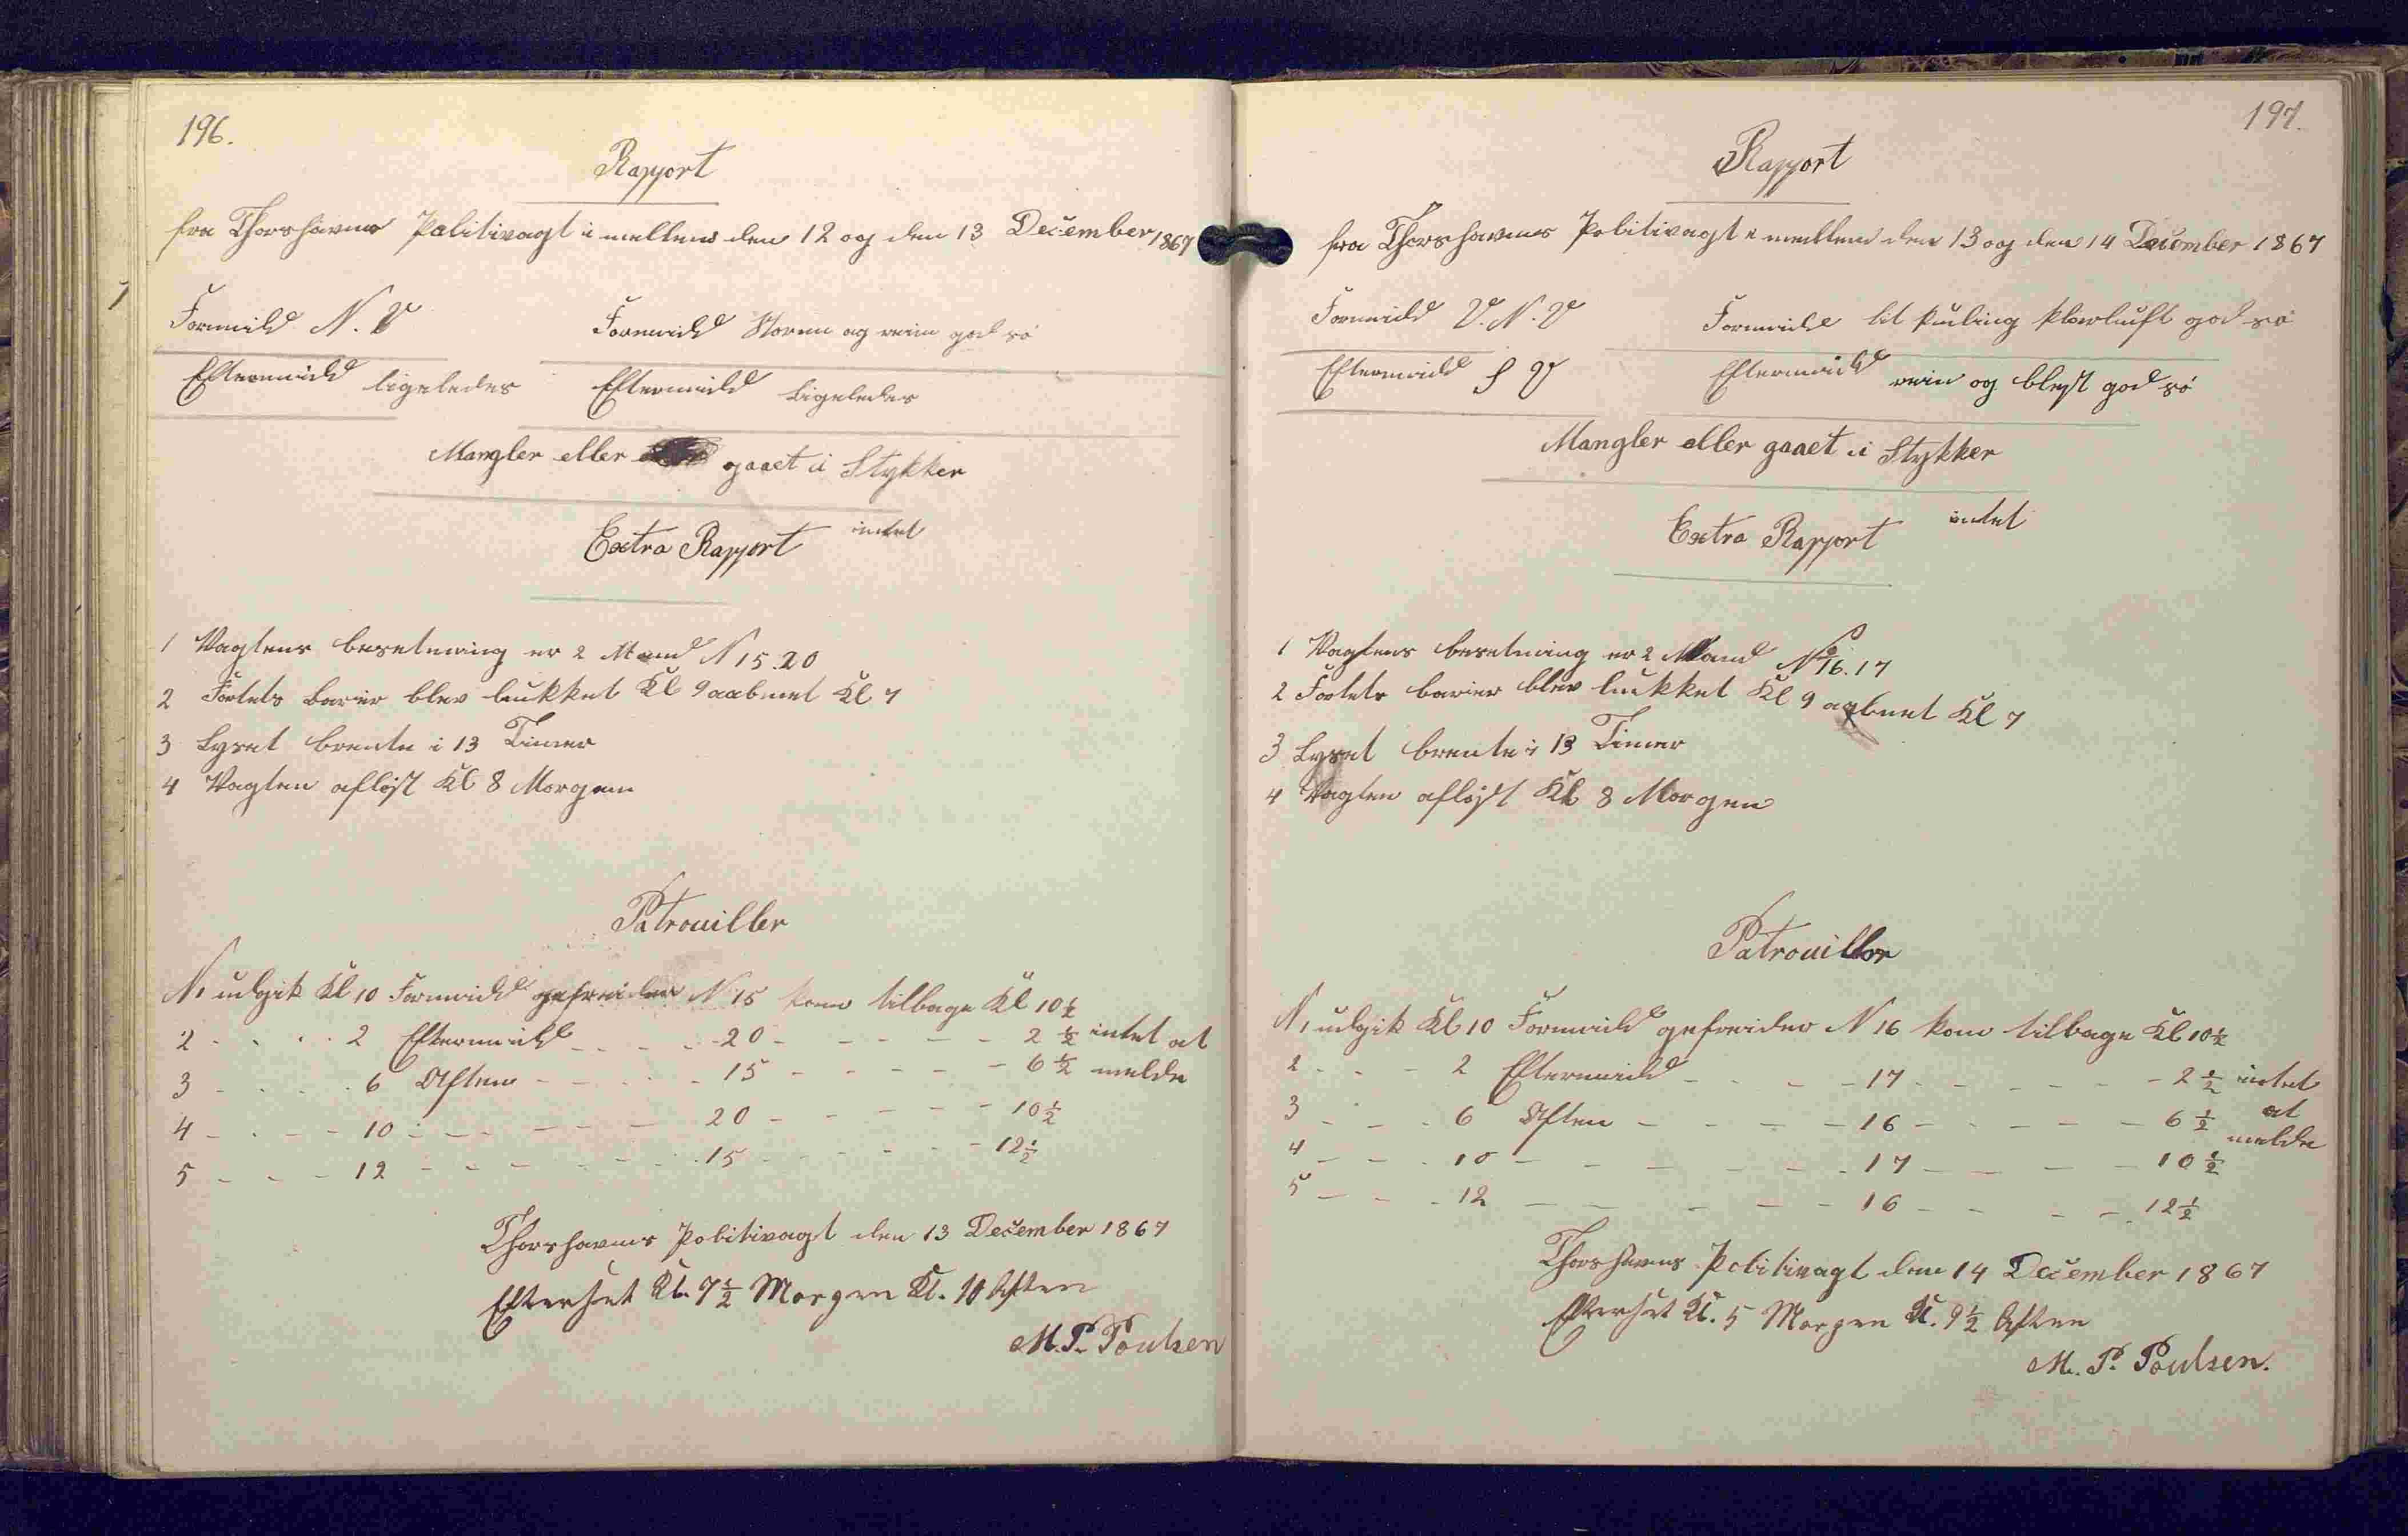 196.
Rapport
fra Thorshavns Politivagt i mellem den 12 og den 13 December 1867
Formidd N. V Formidd Storm og rein god sö
Eftermidd ligeledes Eftermidd Ligeledes
Mangler eller gaaet i Stykker
intet
Extra Rapport
1 Vagtens besetning er 2 Mand N 15.20
2 Fortets barier blev lukket Kl 9 aabnet Kl 7
3 Lyset brente i 13 Timer
4 Vagten aflöst Kl 8 Morgen
Patrouiller
N 1 udgik Kl 10 Formidd gefreider N 15 kom tilbage Kl 10 ½
2 - - - 2 Eftermidd - - - 20 - - - - - 2 ½ intet at
3 - - - 6 Aften - - - - 15 - - - - - 6 ½ melde
4 - - - 10 - - - - - 20 - - - - - 10 ½
5 - - - 12 - - - - - 15 - - - - - 12 ½
Thorshavns Politivagt den 13 December 1867
Efterset Kl. 7 ½ Morgen Kl. 10 Aften
M. P. Poulsen
197.
Rapport
fra Thorshavns Politivagt i mellem den 13 og den 14 December 1867
Formidd V. N. V Formidd lit kuling klarluft god sö
Eftermidd S V Eftermidd rein og blest god sö
Mangler eller gaaet i Stykker
intet
Extra Rapport
1 Vagtens besetning er 2 Mand No 16.17
2 Fortets barier blev lukket Kl 9 aabnet Kl 7
3 Lyset brente i 13 Timer
4 Vagten aflöst Kl 8 Morgen
Patrouiller
N 1 udgik Kl 10 Formidd gefreider N 16 kom tilbage Kl 10 ½
2 - - - 2 Eftermidd - - - - 17 - - - - - 2 ½ intet
3 - - - 6 Aften - - - - 16 - - - - - 6 ½ at
melde
4 - - - 10 - - - - - - 17 - - - - 10 ½
5 - - - 12 - - - - - 16 - - - - 12 ½
Thorshavns Politivagt den 14 December 1867
Efterset Kl. 5 Morgen Kl. 9 ½ Aften
M. P. Poulsen.